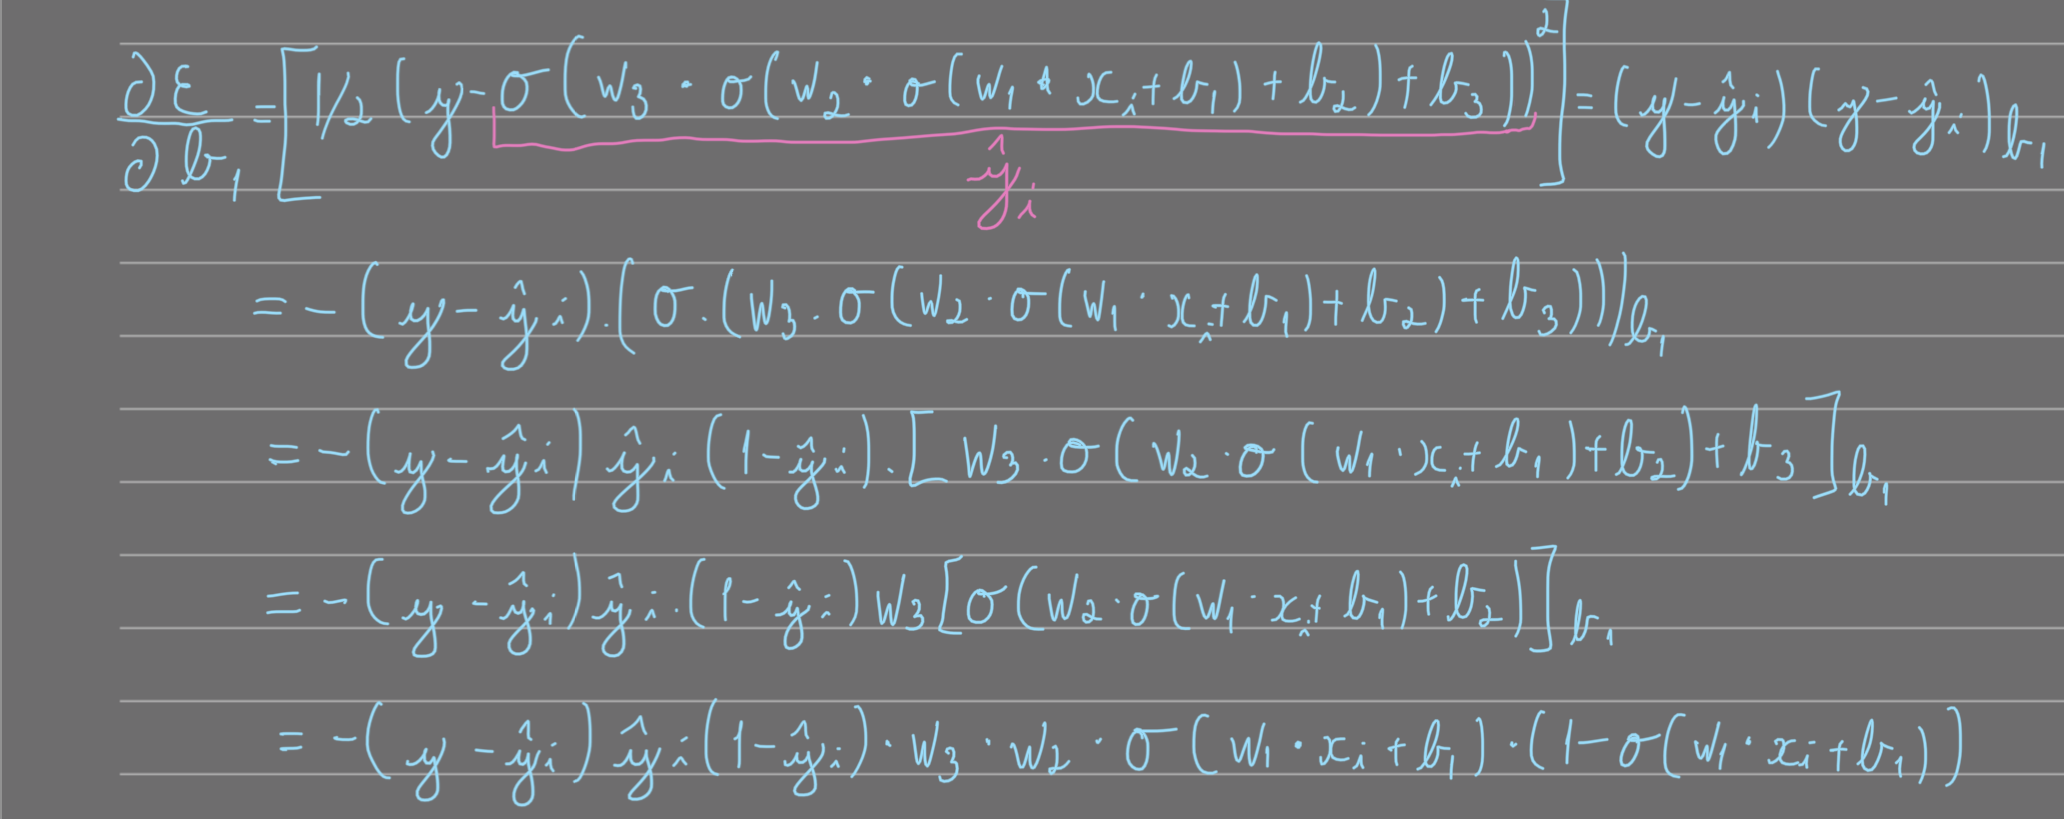 ∂ε/∂b₁ = [1/2 (y - σ(w₃ · σ(w₂ · σ(w₁ * xᵢ + b₁) + b₂) + b₃))²] = (y - ŷᵢ)(y - ŷᵢ)_b₁
ŷᵢ
= - (y - ŷᵢ) · (σ · (w₃ · σ(w₂ · σ(w₁ · xᵢ + b₁) + b₂) + b₃))_b₁
= - (y - ŷᵢ) ŷᵢ (1 - ŷᵢ) · [w₃ · σ(w₂ · σ(w₁ · xᵢ + b₁) + b₂) + b₃]_b₁
= - (y - ŷᵢ) ŷᵢ · (1 - ŷᵢ) w₃ [σ(w₂ · σ(w₁ · xᵢ + b₁) + b₂)]_b₁
= - (y - ŷᵢ) ŷᵢ (1 - ŷᵢ) · w₃ · w₂ · σ(w₁ · xᵢ + b₁) · (1 - σ(w₁ · xᵢ + b₁))